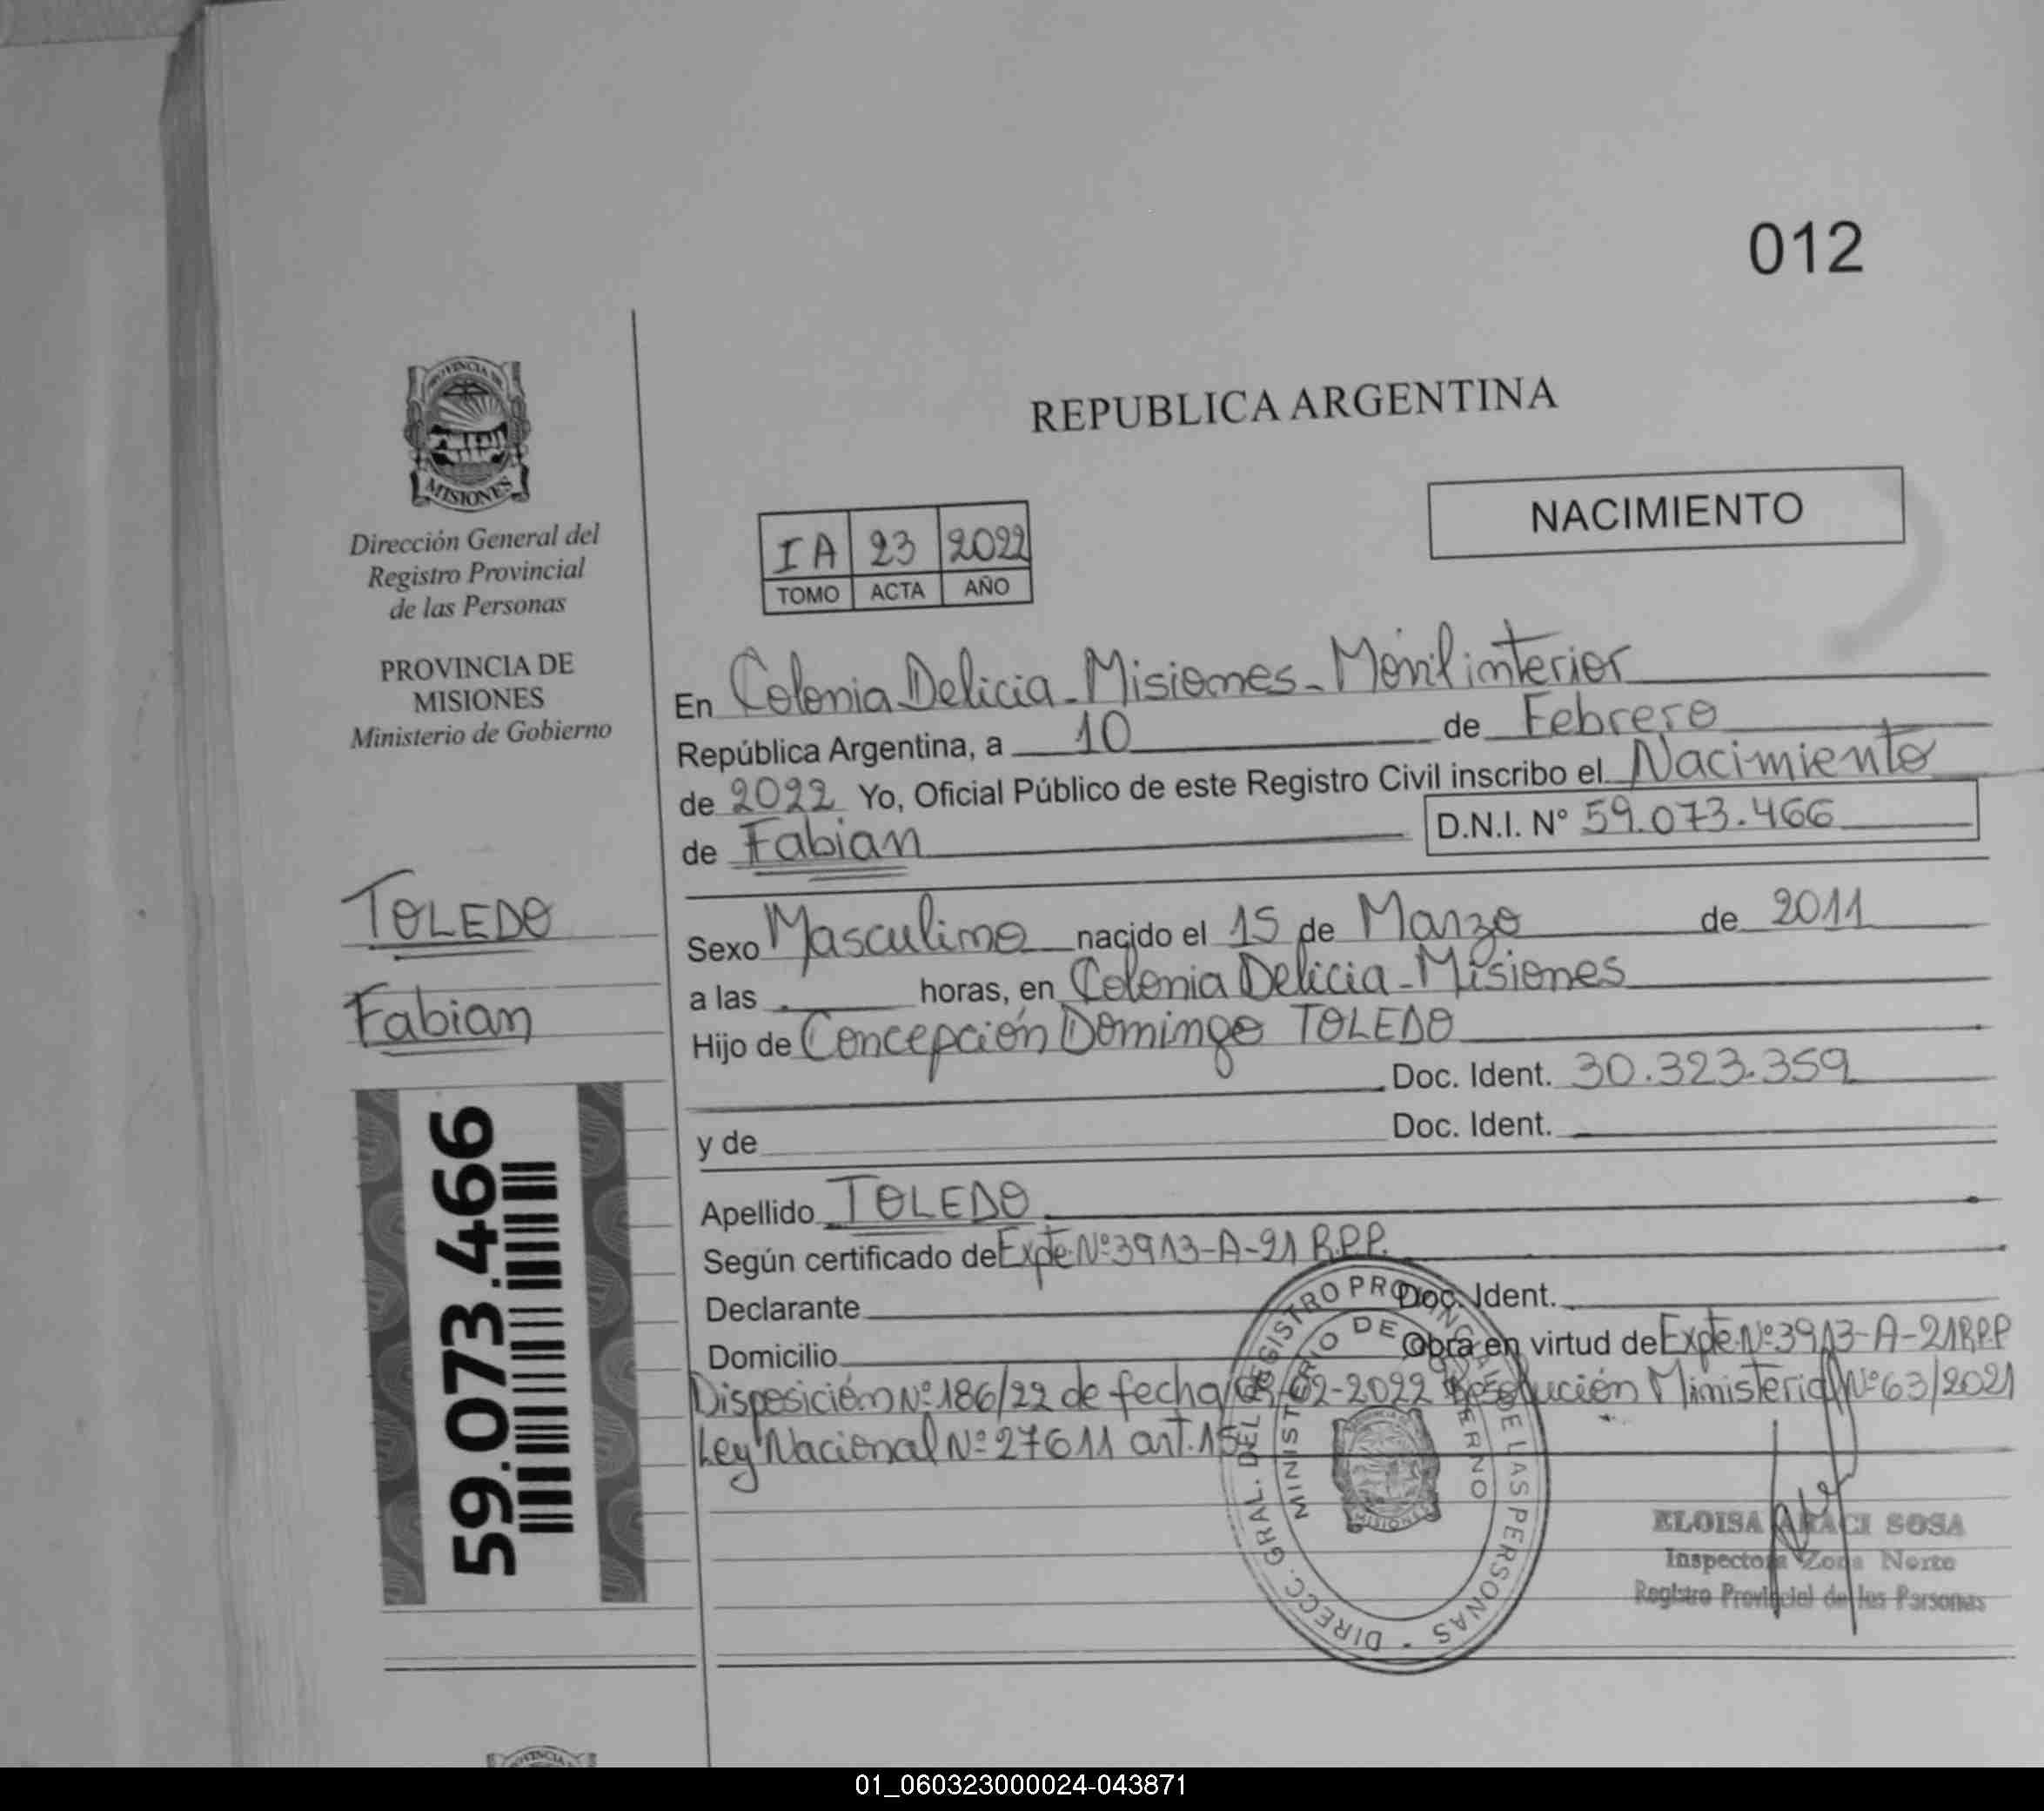 012
PROVINCIA DE
MISIONES
Dirección General del
Registro Provincial
de las Personas
PROVINCIA DE
MISIONES
Ministerio de Gobierno
TOLEDO
Fabian
59.073.466
REPUBLICA ARGENTINA
NACIMIENTO
IA 23 2022
TOMO ACTA AÑO
En Colonia Delicia - Misiones - Móvil interior
República Argentina, a 10 de Febrero
de 2022 Yo, Oficial Público de este Registro Civil inscribo el Nacimiento
de Fabian D.N.I. N° 59.073.466
Sexo Masculino nacido el 15 de Marzo de 2011
a las horas, en Colonia Delicia - Misiones
Hijo de Concepción Domingo TOLEDO
Doc. Ident. 30.323.359
y de Doc. Ident.
Apellido TOLEDO
Según certificado de Expte. Nº 3913-A-21 R.P.P.
Declarante Doc. Ident.
Domicilio Obra en virtud de Expte. Nº 3913-A-21 R.P.P
Disposición Nº 186/22 de fecha 02-2022 Resolución Ministerial Nº 63/2021
Ley Nacional Nº 27611 art. 15
DIRECC. GRAL. DEL REGISTRO PROVINCIAL DE LAS PERSONAS
MINISTERIO DE GOBIERNO
MISIONES
ELOISA ARACI SOSA
Inspectora Zona Norte
Registro Provincial de las Personas
01_060323000024-043871